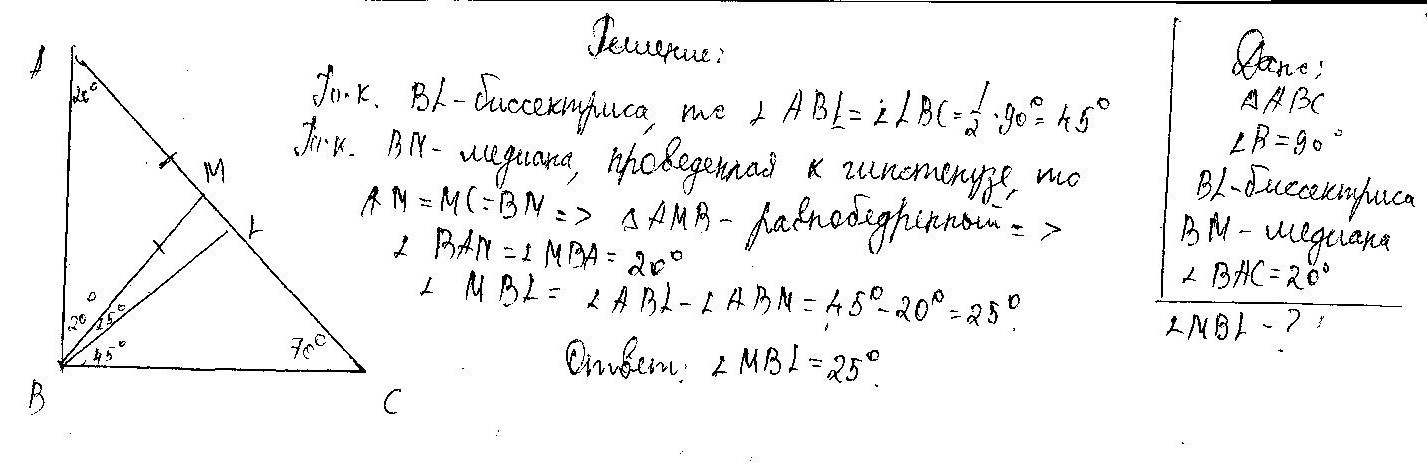 Решение:
Т.к. BL-биссектриса, то ∠ABL=∠LBC=1/2·90°=45°
Т.к. BM-медиана, проведенная к гипотенузе, то
AM=MC=BM=> ΔAMB-равнобедренный=>
∠BAM=∠MBA=20°
∠MBL=∠ABL-∠ABM=45°-20°=25°.
Ответ: ∠MBL=25°.
Дано:
ΔABC
∠B=90°
BL-биссектриса
BM-медиана
∠BAC=20°
∠MBL-?
A
20°
M
L
20°
25°
45°
70°
B
C